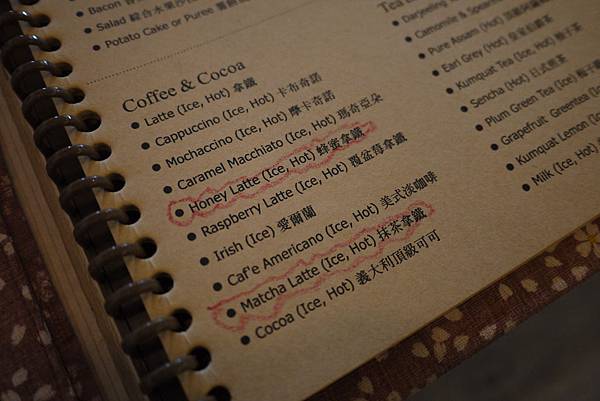 Bacon
Salad 綜合水果沙
Potato Cake or Puree 薯餅
Coffee & Cocoa
Latte (Ice, Hot) 拿鐵
Cappuccino (Ice, Hot) 卡布奇諾
Mochaccino (Ice, Hot) 摩卡奇諾
Caramel Macchiato (Ice, Hot) 瑪奇亞朵
Honey Latte (Ice, Hot) 蜂蜜拿鐵
Raspberry Latte (Ice, Hot) 覆盆莓拿鐵
Irish (Ice) 愛爾蘭
Caf'e Americano (Ice, Hot) 美式淡咖啡
Matcha Latte (Ice, Hot) 抹茶拿鐵
Cocoa (Ice, Hot) 義大利頂級可可
Tea
Darjeeling
Camomile & Spearmint
Pure Assam (Hot)
Earl Grey (Hot) 皇家伯爵茶
Kumquat Tea (Ice, Hot) 柚子茶
Sencha (Hot) 日式煎茶
Plum Green Tea (Ice, Hot)
Grapefruit Greentea (Ice
Kumquat Lemon (Ice,
Milk (Ice, Hot)